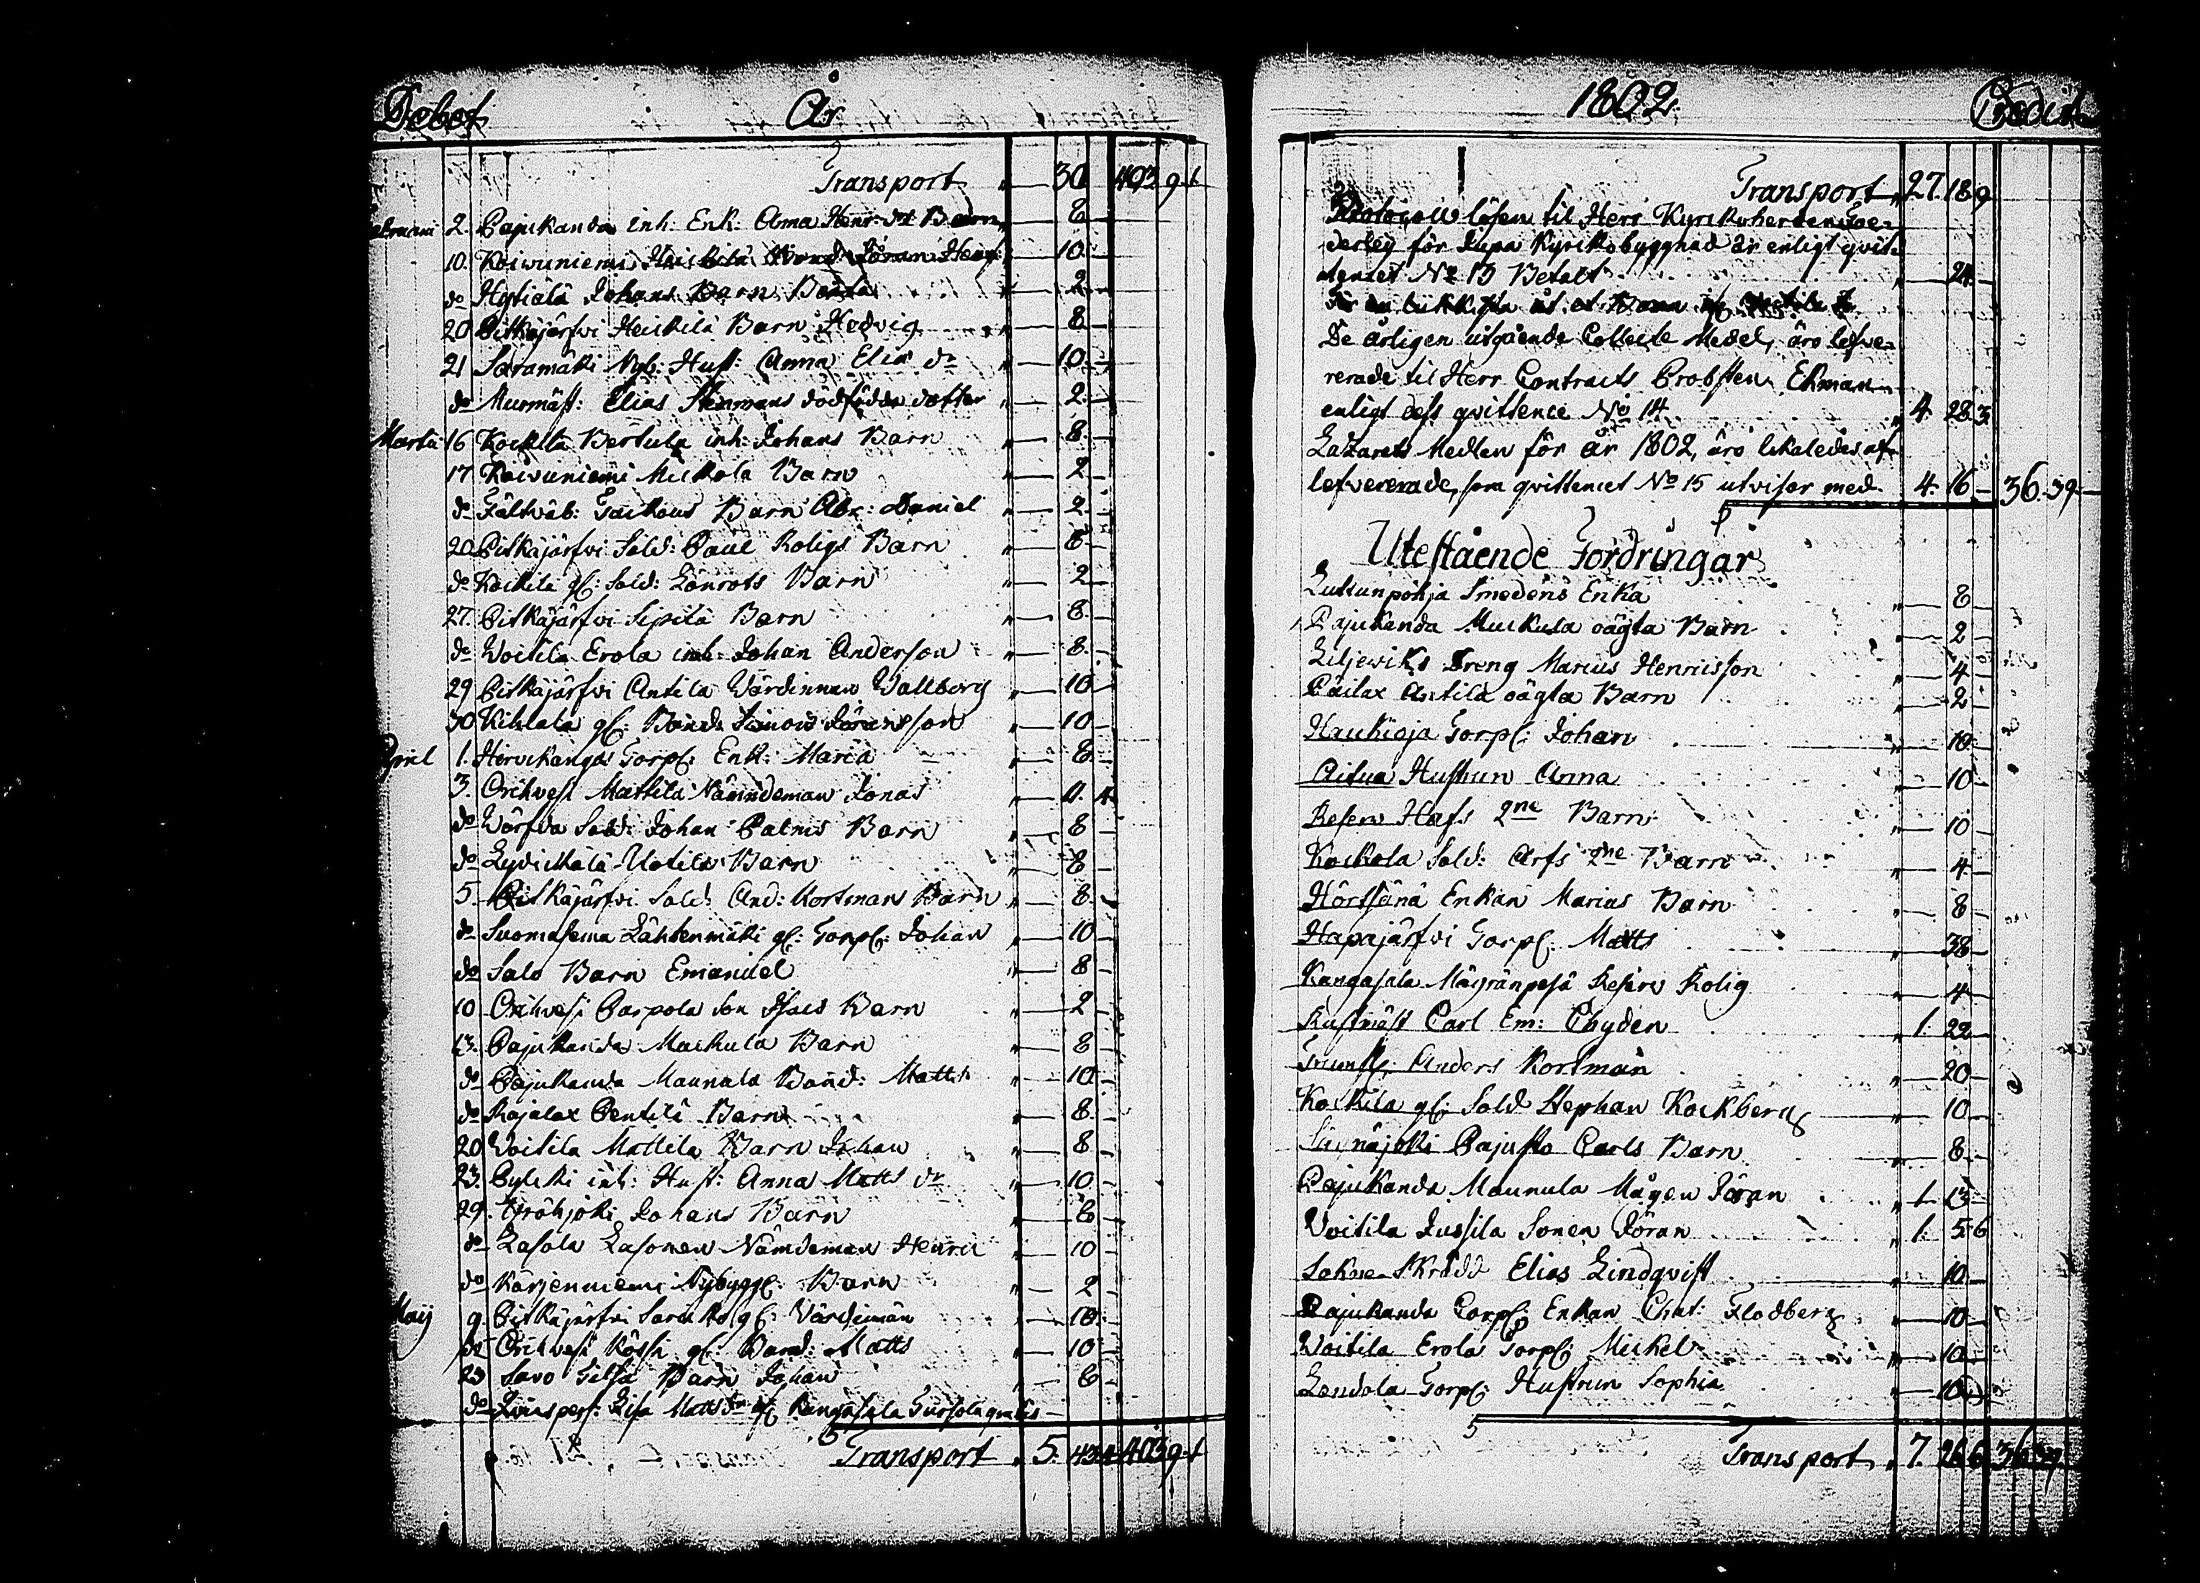 Debet År
Transport 30. 403. 9. 1
Februarii 2. Pajukanda inh: Enk: Anna Henr: dr Barn 8
10. Koivuniemi Heickilä Bond: Jöran Henr: 10.
do Hytiälä Johans Barn 2
20 Pitkäjärfvi Heickilä Barn Hedvig 8
21 Saramäki Nyb: Hust: Anna Elia dr 10.
do Murmäst: Elias Stenmans dödfödda dotter 2.
Martii 16 Kockila Bertula inh: Johans Barn 8.
17 Koivuniemi Mickola Barn 2
do Fältväb: Barn Abr: Daniel 2.
20 Pitkäjärfvi Sold: Paul Roligs Barn 8
do Kockila gl: Sold: Lönrots Barn 2
27. Pitkäjärfvi Sipilä Barn 8.
do Woitila Erola inh: Johan Anderson 8.
29 Pitkäjärfvi Antila Värdinnan Wallborg 10
30 Kihlala gl: Bond: Simon Jöransson 10
April 1. Hervikangas Torp: Enk: Maria 8
3. Orihvesi Mattila Nämndeman Jonas 11. 4
do Sold: Johan Palms Barn 8
do Lyvickälä Uotila Barn 8
5. Pitkäjärfvi Sold: And: Kortmans Barn 8.
do Suomasema Lähtenmäki gl: Torp: Johan 10
do Salo Barn Emanuel 8
10 Orihvesi Parpola Son Isacs Barn 2
13. Pajukanda Mackula Barn 8
do Pajukanda Maunula Bond: Matts 10
do Rajalax Pentilä Barn 8.
20 Voitila Mattila Barn Johan 8
23. Pyleki inh: Hust: Anna Matts dr 10
29. Johans Barn 8
do Lasola Lasonen Nämdeman Henric 10
do Kärjenniemi Nybygg: Barn 2
Maij 9. Pitkäjärfvi gl: Värdinnan 10.
do Orihvesi Kössi gl: Bond: Matts 10
23 Savo Barn Johan 8
do Lisa Matts dr Kangasala gratis
Transport 5. 43. 4 403. 9. 1
1802. Credit
Transport 27. 18. 9
Protocolls lösen til Herr Kyrkoherden
för Kyrkobyggnad är enligt qvit-
tencet No 13 Betalt 24
De årligen utgående Collecte Medel, äro lefve-
rerade til Herr Contracts Probsten Ekman
enligt dess qvittence No 14. 4. 28. 3
Lazarets Medlen för år 1802, äro likaledes af-
lefvererade, som qvittencet No 15 utvisar med 4. 16 36. 39.
Utestående Fordringar
Smedens Enka 8
Pajukanda Mackula oägta Barn 2
Liljewiks Dreng Marius Henricsson 4
Pailax Antila oägta Barn 2
Haukioja Torp: Johan 10
Hustrun Anna 10
Hafs 2ne Barn 10
Kockola Sold: Arfs 2ne Barn 4
Hörtsänä Enkan Marias Barn 8
Hapajärfvi Torp: Matts 38
Kangasala Mäyränpesä Reserv Rolig 4
Rustmäst Carl Em: Chyden 1. 22
Anders Kortman 20
Kockila gl: Sold Stephan Kockberg 10
Pajusko Carls Barn 8
Pajukanda Maunula Mågen Jöran 1 13
Voitila Jussila Sonen Jöran 1. 5. 6
Sokne Skrädd Elias Lindqvist 10
Pajukanda Corp: Enkan Chat: Flodberg 10
Woitila Erola Torp: Mickel 10
Londola Torp: Hustrun Sophia 10
Transport 7. 26. 6 36. 39